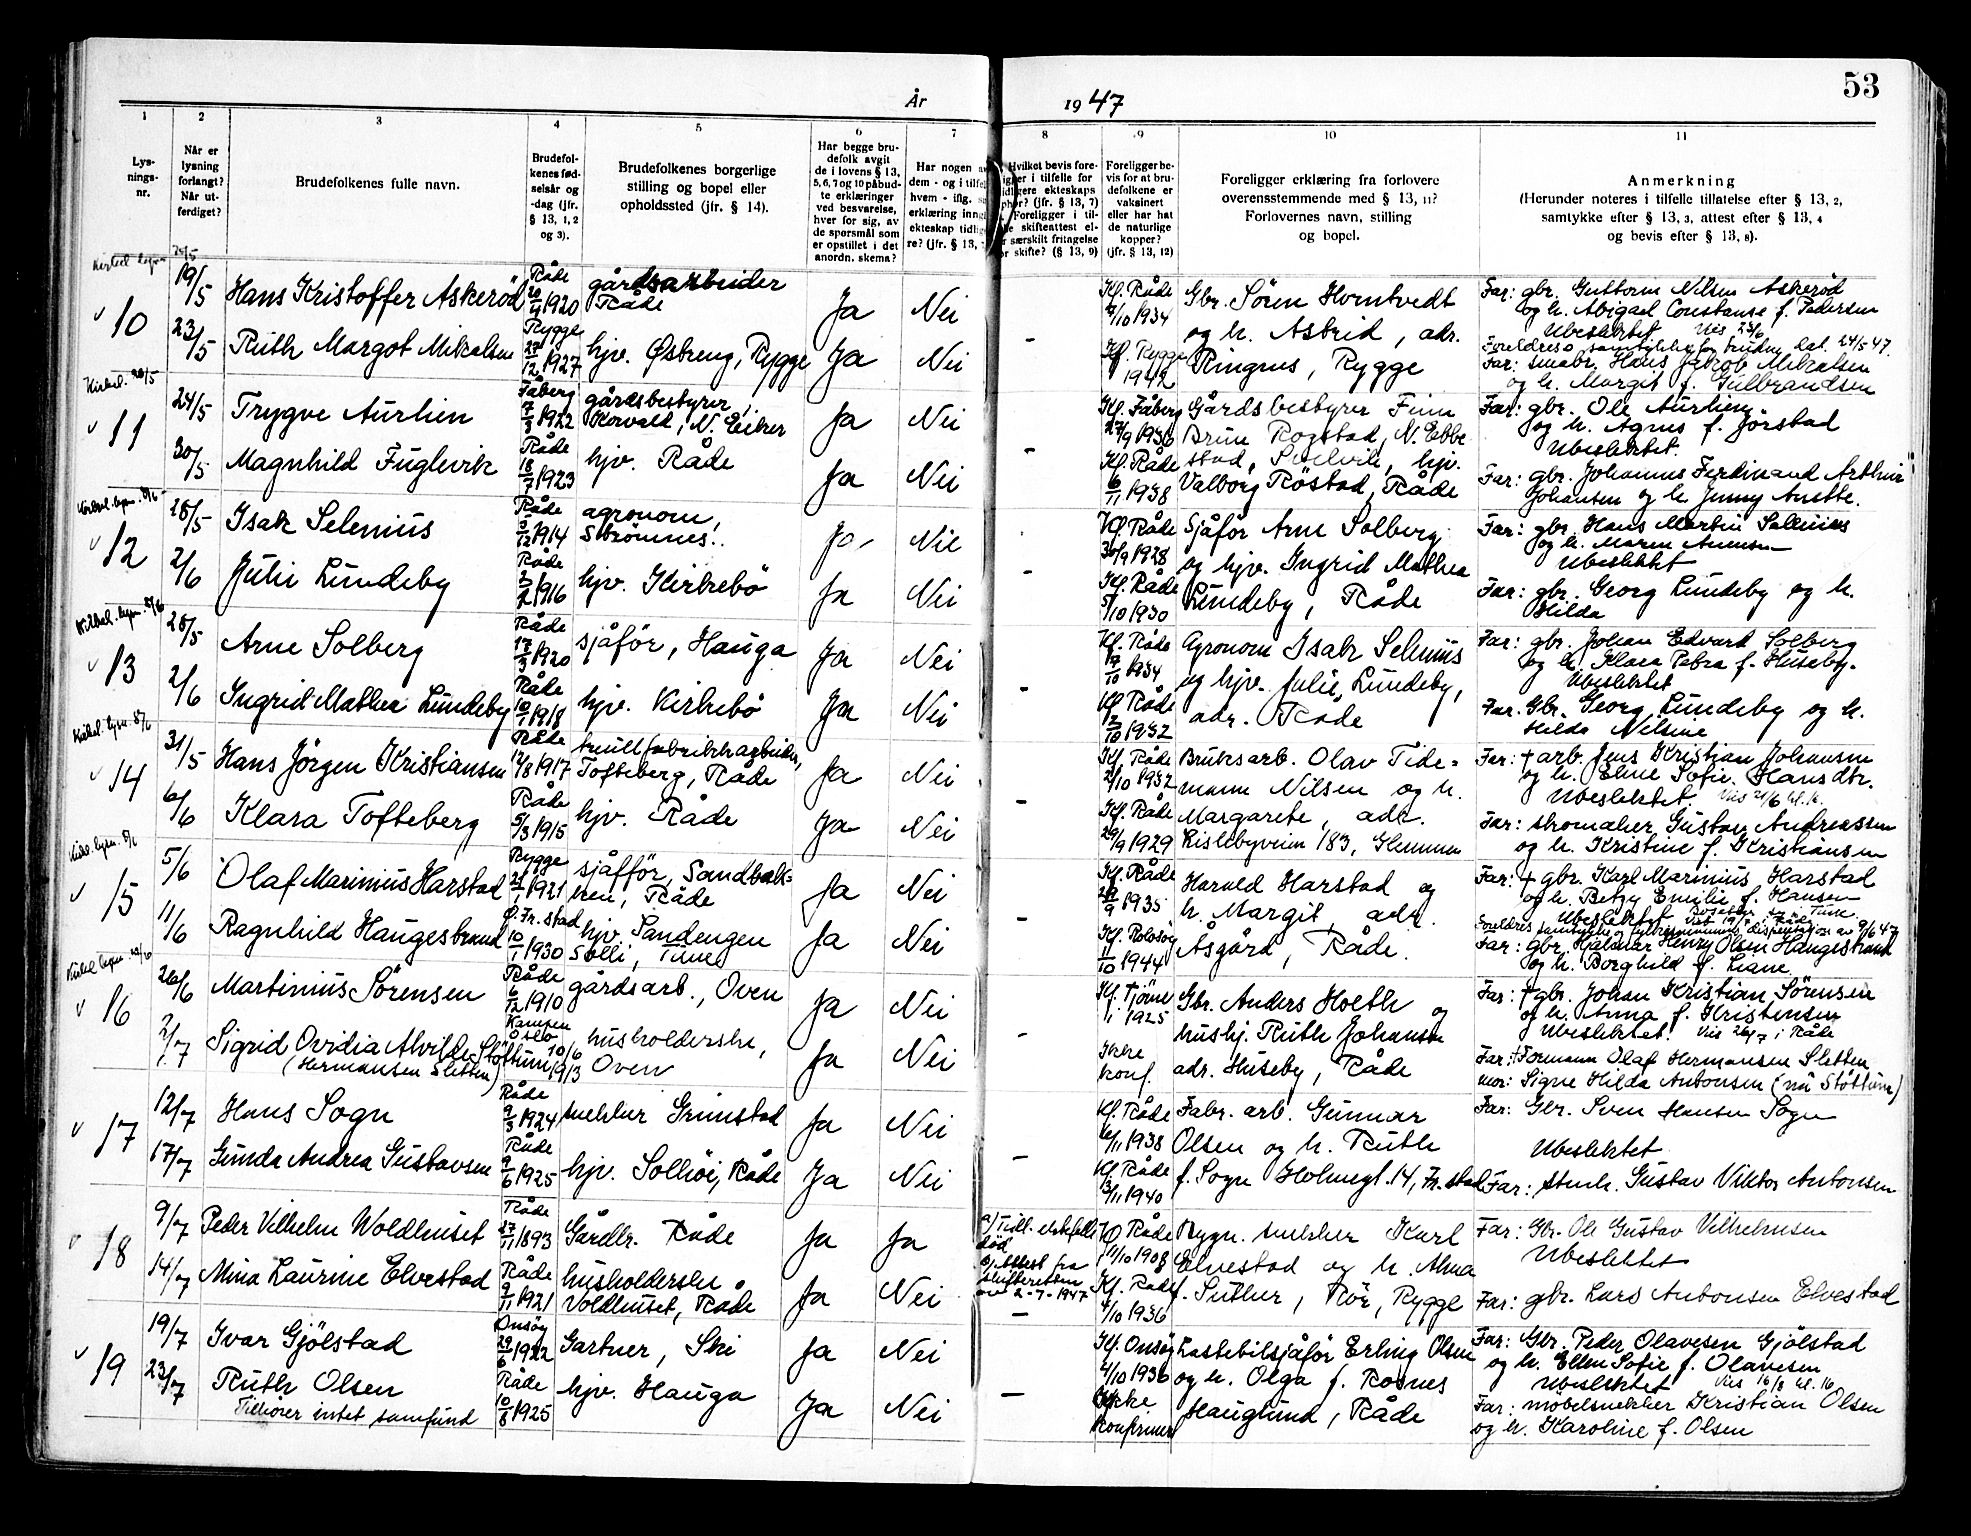 53
År 1947
1 2 3 4 5 6 7 8 9 10 11
Lysningsnr.
Når er lysning forlangt? Når utferdiget?
Brudefolkenes fulle navn.
Brudefolkenes fødselsår og -dag (jfr. § 13, 1, 2 og 3).
Brudefolkenes borgerlige stilling og bopel eller opholdssted (jfr. § 14).
Har begge brudefolk avgit de i lovens § 13, 5, 6, 7 og 10 påbudte erklæringer ved besvarelse, hver for sig, av de spørsmål som er opstillet i det anordn. skema?
Har nogen av dem - og i tilfelle hvem - iflg.
erklæring inngått ekteskap tidligere? (jfr. § 13,
Hvilket bevis foreligger i tilfelle for tidligere ekteskaps ophør? (jfr. § 13, 7)
Foreligger i tilfelle skifteattest eller særskilt fritagelse for skifte? (§ 13, 9)
Foreligger bevis for at brudefolkene er vaksinert eller har hat de naturlige kopper? (jfr. § 13, 12)
Foreligger erklæring fra forlovere overensstemmende med § 13, 11? Forlovernes navn, stilling og bopel.
Anmerkning
(Herunder noteres i tilfelle tillatelse efter § 13, 2, samtykke efter § 13, 3, attest efter § 13, 4 og bevis efter § 13, 8).
10
19/5 Hans Kristoffer Askeröd Råde 1920 gårdsarbeider Råde Ja Nei
Kf. Råde 7/10 1934 Gbr. Sören Homtvedt og h. Astrid, adr.
Far: gbr. Guttorm Nilsen Askeröd og h. Abigael Constanse f. Pedersen
Ubeslektet
23/5 Ruth Margot Mikalsen Rygge 1927 hjv. Østreng, Rygge Ja Nei -
Kf. Rygge 1942 Ringnes, Rygge
Foreldres samtykke for bruden dat. 24/5 47.
Far: småbr. Hans Jakob Mikalsen og h. Margit f. Gulbrandsen
11
24/5 Trygve Aurlien Fåberg 1922 gårdsbestyrer, Korvald, N. Eiker Ja Nei
Kf. Fåberg 27/9 1936 Gårdsbestyrer Finn Brun Rogstad, N. Ebbestad, Svelvik, hjv.
Far: gbr. Ole Aurlien og h. Agnes f. Jörstad
Ubeslektet.
30/5 Magnhild Fuglevik Råde 18/7 1923 hjv. Råde Ja Nei -
Kf. Råde 6/11 1938 Valborg Röstad, Råde
Far: gbr. Johannes Ferdinand Arthur Johansen og h. Jenny Anette.
12
28/5 Isak Selenius Råde 1914 agronom, Strömnes. Ja Nei
Kf. Råde 30/9 1928 Sjåför Arne Solberg og hjv. Ingrid Mathea
Far: gbr. Hans Martin Selenius og h. Maren Arnesen
Ubeslektet
2/6 Julie Lundeby Råde 1916 hjv. Kirkebö Ja Nei -
Kf. Råde 5/10 1930 Lundeby, Råde
Far: gbr. Georg Lundeby og h. Hilda
13
28/5 Arne Solberg Råde 17/3 1920 sjåför, Hauga Ja Nei
Kf. Råde 1934 Agronom Isak Selenius og hjv. Julie Lundeby,
Far: gbr. Johan Edvard Solberg og h. Klara Petra f. Huseby.
Ubeslektet
2/6 Ingrid Mathea Lundeby Råde 10/1 1918 hjv. Kirkebö Ja Nei -
Kf. Råde 2/10 1932 adr. Råde
Far: Gbr. Georg Lundeby og h. Hilda Nilsine
14
31/5 Hans Jörgen Kristiansen Råde 1917 Tofteberg, Råde Ja Nei
Kf. Råde 2/10 1932 Bruksarb. Olav Tidemann Nilsen og h.
Far: + arb. Jens Kristian Johansen og h. Elene Sofie Hansdtr.
Ubeslektet. Vies 21/6 kl. 16.
6/6 Klara Tofteberg Råde 5/3 1915 hjv. Råde Ja Nei -
Kf. Råde 29/9 1929 Margarete, adr. Lislebyveien 183, Glemmen
Far: skomaker Gustav Andreassen og h. Kristine f. Kristiansen
15
5/6 Olaf Marinius Harstad Rygge 1921 sjåför, Sandbakken, Råde Ja Nei
Kf. Råde 1935 Harald Harstad og h. Margit, adr.
Far: + gbr. Karl Marinius Harstad og h. Betzy Emilie f. Hansen
Ubeslektet
11/6 Ragnhild Haugesbrand Ö. Fr.stad 10/1 1930 hjv. Sandengen Solli, Tune Ja Nei
Kf. Rolvsöy 1/10 1944 Åsgård, Råde.
Foreldres samtykke og fylkesmannens dispensasjon av 9/6 47
Far: gbr. Hjalmar Henry Olsen Haugesbrand og h. Borghild f. Liane
16
26/6 Martinius Sörensen Råde 6/12 1910 gårdsarb., Oven Ja Nei
Kf. Tjöme 1925 Gbr. Anders Hoeth og
Far: + gbr. Johan Kristian Sörensen og h. Anna f. Kristensen
Ubeslektet. Vies 26/7 i Råde
2/7 Sigrid Ovidia Alvilde Stöttum (Hermansen Sletten) Kampen Oslo 10/6 1913 husholderske, Oven Ja Nei -
Ikke konf. hushj. Ruth Johansen adr. Huseby, Råde
Far: + Formann Olaf Hermansen Sletten
mor: Signe Hilda Antonsen (nå Stöttum)
17
12/7 Hans Sogn Råde 9/3 1924 snekker Grimstad Ja Nei
Kf. Råde 6/11 1938 Fabr. arb. Gunnar Olsen og h. Ruth
Far: Gbr. Sven Hansen Sogn
Ubeslektet
17/7 Gunda Andrea Gustavsen Råde 9/6 1925 hjv. Solhöi, Råde Ja Nei -
Kf. Råde 3/11 1940 f. Sogn Holmegt. 14, Fr.stad
Far: stenh. Gustav Viktor Antonsen
18
9/7 Peder Vilhelm Woldhuset Råde 27/11 1893 Gårdbr. Råde Ja Ja
a) Tidl. ektefelle död b) Attest fra skifteretten av 2-7-1947
Kf. Råde 11/10 1908 Bygn. snekker Karl Elvestad og h. Alma
Far: Gbr. Ole Gustav Vilhelmsen
Ubeslektet
14/7 Mina Laurine Elvestad Råde 9/11 1921 husholderske Voldhuset, Råde Ja Nei -
Kf. Råde 4/10 1936 f. Sutter, Rör, Rygge
Far: gbr. Lars Antonsen Elvestad
19
19/7 Ivar Gjölstad Onsöy 29/6 1922 Gartner, Ski Ja Nei
Kf. Onsöy 4/10 1936 Lastebilsjåför Erling Olsen og h. Olga f. Rosnes
Far: Gbr. Peder Olavesen Gjölstad og h. Ellen Sofie f. Olavesen
Ubeslektet Vies 16/8 kl. 16
23/7 Ruth Olsen Råde 10/8 1925 hjv. Hauga Ja Nei -
Tilhörer intet samfund
Ikke konfirmert Hauglund, Råde
Far: möbelsnekker Kristian Olsen og h. Karoline f. Olsen